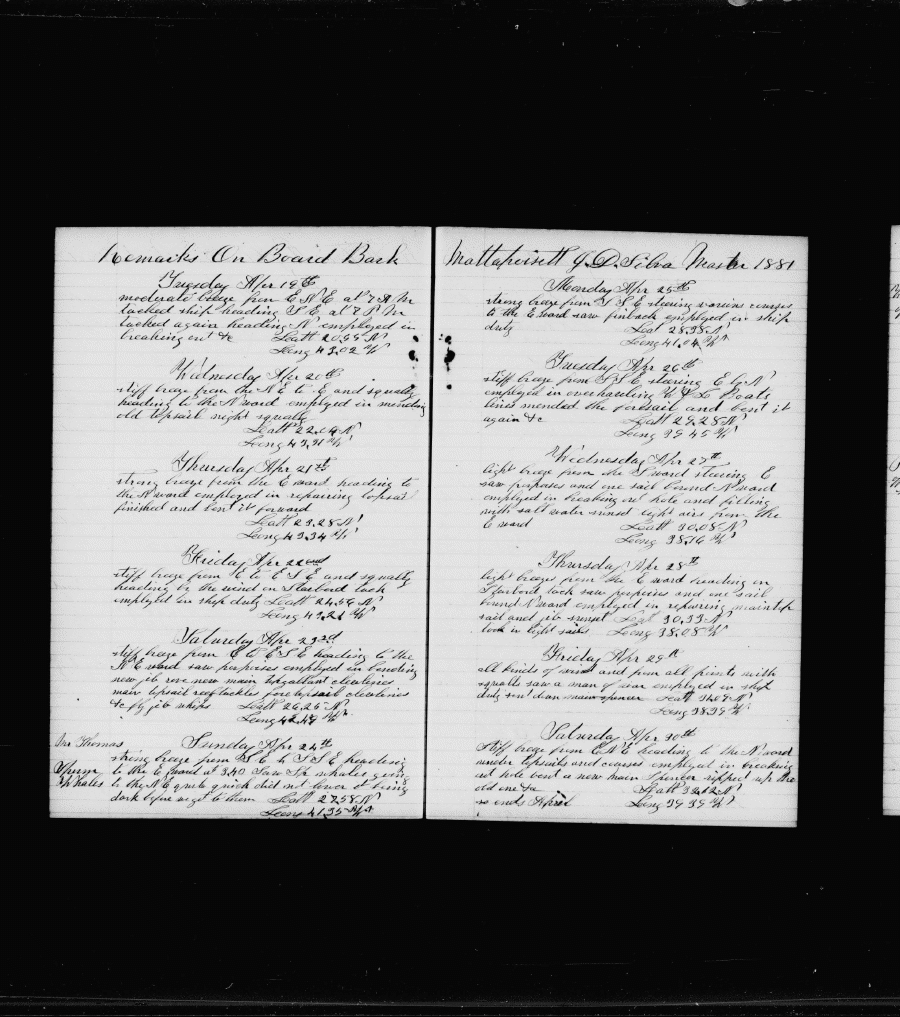 Remarks On Board Bark
Tuesday Apr 19th
moderate breeze from E N E at 7 A M
tacked ship heading S E at 8 P M
tacked again heading N employed in
breaking out &c Latt 20.55 N
Long 43.02 W
Wednesday Apr 20th
stiff breeze from the N E to E and squally
heading to the N ward employed in mending
old topsail night squally
Latt 22.04 N
Long 43.31 W
Thursday Apr 21st
strong breeze from the E ward heading to
the N ward employed in repairing topsail
finished and bent it forward
Latt 23.28 N
Long 43.34 W
Friday Apr 22nd
stiff breeze from E to E S E and squally
heading by the wind on Starbord tack
employed in ship duty Latt 24.54 N
Long 43.21 W
Saturday Apr 23rd
stiff breeze from E to E S E heading to the
N E ward saw porpoises employed in bending
new jib rove new main topgallant clewlines
main topsail reeftackles fore topsail clewlines
&c fy jib whips Latt 26.25 N
Long 42.49 W
Mr Thomas
Sperm
Whales
Sunday Apr 24th
strong breeze from S E to S S E heading
to the E ward at 3.40 saw Sp whales going
to the N E quite quick did not lower it being
dark before we got to them Latt 27.58 N
Long 41.35 W
Mattapoisett J. D. Silva Master 1881
Monday Apr 25th
strong breeze from S S E steering various courses
to the E ward saw finback employed in ship
duty Lat 28.38 N
Long 41.04 W
Tuesday Apr 26th
stiff breeze from S S E stearing E by N
employed in overhauling Boats
lines mended the foresail and bent it
again &c Latt 29.28 N
Long 39.45 W
Wednesday Apr 27th
light breeze from the S ward steering E
saw porpoises and one sail bound N ward
employed in breaking out hole and filling
with salt water sunset light airs from the
E ward Latt 30.08 N
Long 38.16 W
Thursday Apr 28th
light breeze from the E ward heading on
Starbord tack saw porpoises and one sail
bound N ward employed in repairing maintop
sail and jib sunset Lat 30.33 N
took in light sails Long 38.08 W
Friday Apr 29th
all kinds of wind and from all points with
squalls saw a man of war employed in ship
duty sent down main spencer Latt 31.09 N
Long 38.39 W
Saturday Apr 30th
Stiff breeze from E N E heading to the N ward
under topsails and courses employed in breaking
out hole bent a new main Spencer ripped up the
old one &c Latt 32.12 N
so ends April Long 39.39 W